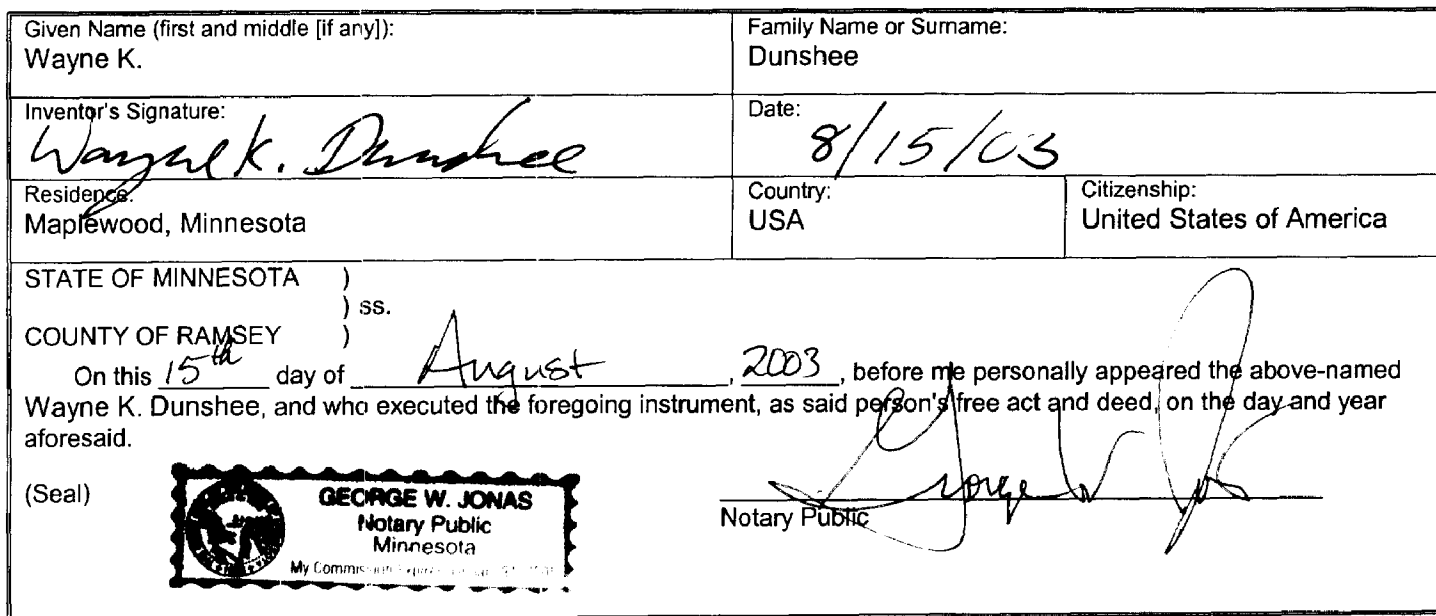 Given Name (first and middle [if any]):
Wayne K.
Family Name or Surname:
Dunshee
Inventor's Signature:
Wayne K. Dunshee
Date:
8/15/03
Residence:
Maplewood, Minnesota
Country:
USA
Citizenship:
United States of America
STATE OF MINNESOTA )
) ss.
COUNTY OF RAMSEY )
On this 15th day of August, 2003, before me personally appeared the above-named
Wayne K. Dunshee, and who executed the foregoing instrument, as said person's free act and deed, on the day and year
aforesaid.
(Seal)
GEORGE W. JONAS
Notary Public
Minnesota
My Commission Expires
George W Jonas
Notary Public